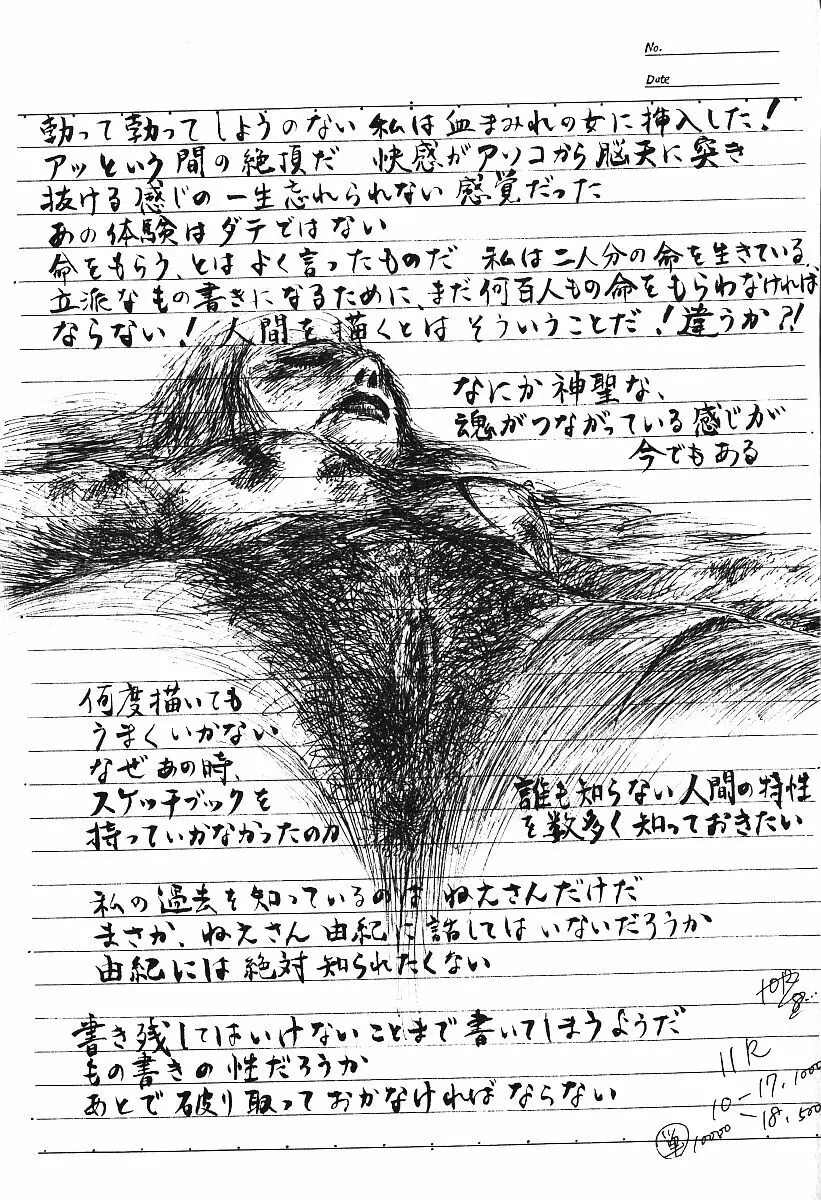 No.
Date
勃って勃ってしようのない 私は血まみれの女に挿入した！
アッという間の絶頂だ 快感がアソコから脳天に突き
抜ける感じの一生忘れられない感覚だった
あの体験はダテではない
命をもらう、とはよく言ったものだ 私は二人分の命を生きている
立派なもの書きになるために、まだ何百人もの命をもらわなければ
ならない！ 人間を描くとはそういうことだ！違うか?!
なにか神聖な、
魂がつながっている感じが
今でもある
何度描いても
うまくいかない
なぜあの時、
スケッチブックを
持っていかなかったのか
誰も知らない人間の特性
を数多く知っておきたい
私の過去を知っているのは ねえさんだけだ
まさか、ねえさん 由紀に話してはいないだろうか
由紀には絶対知られたくない
書き残してはいけないことまで書いてしまうようだ
もの書きの性だろうか
あとで破り取っておかなければならない
11R
10-17.1000
10000-18.500